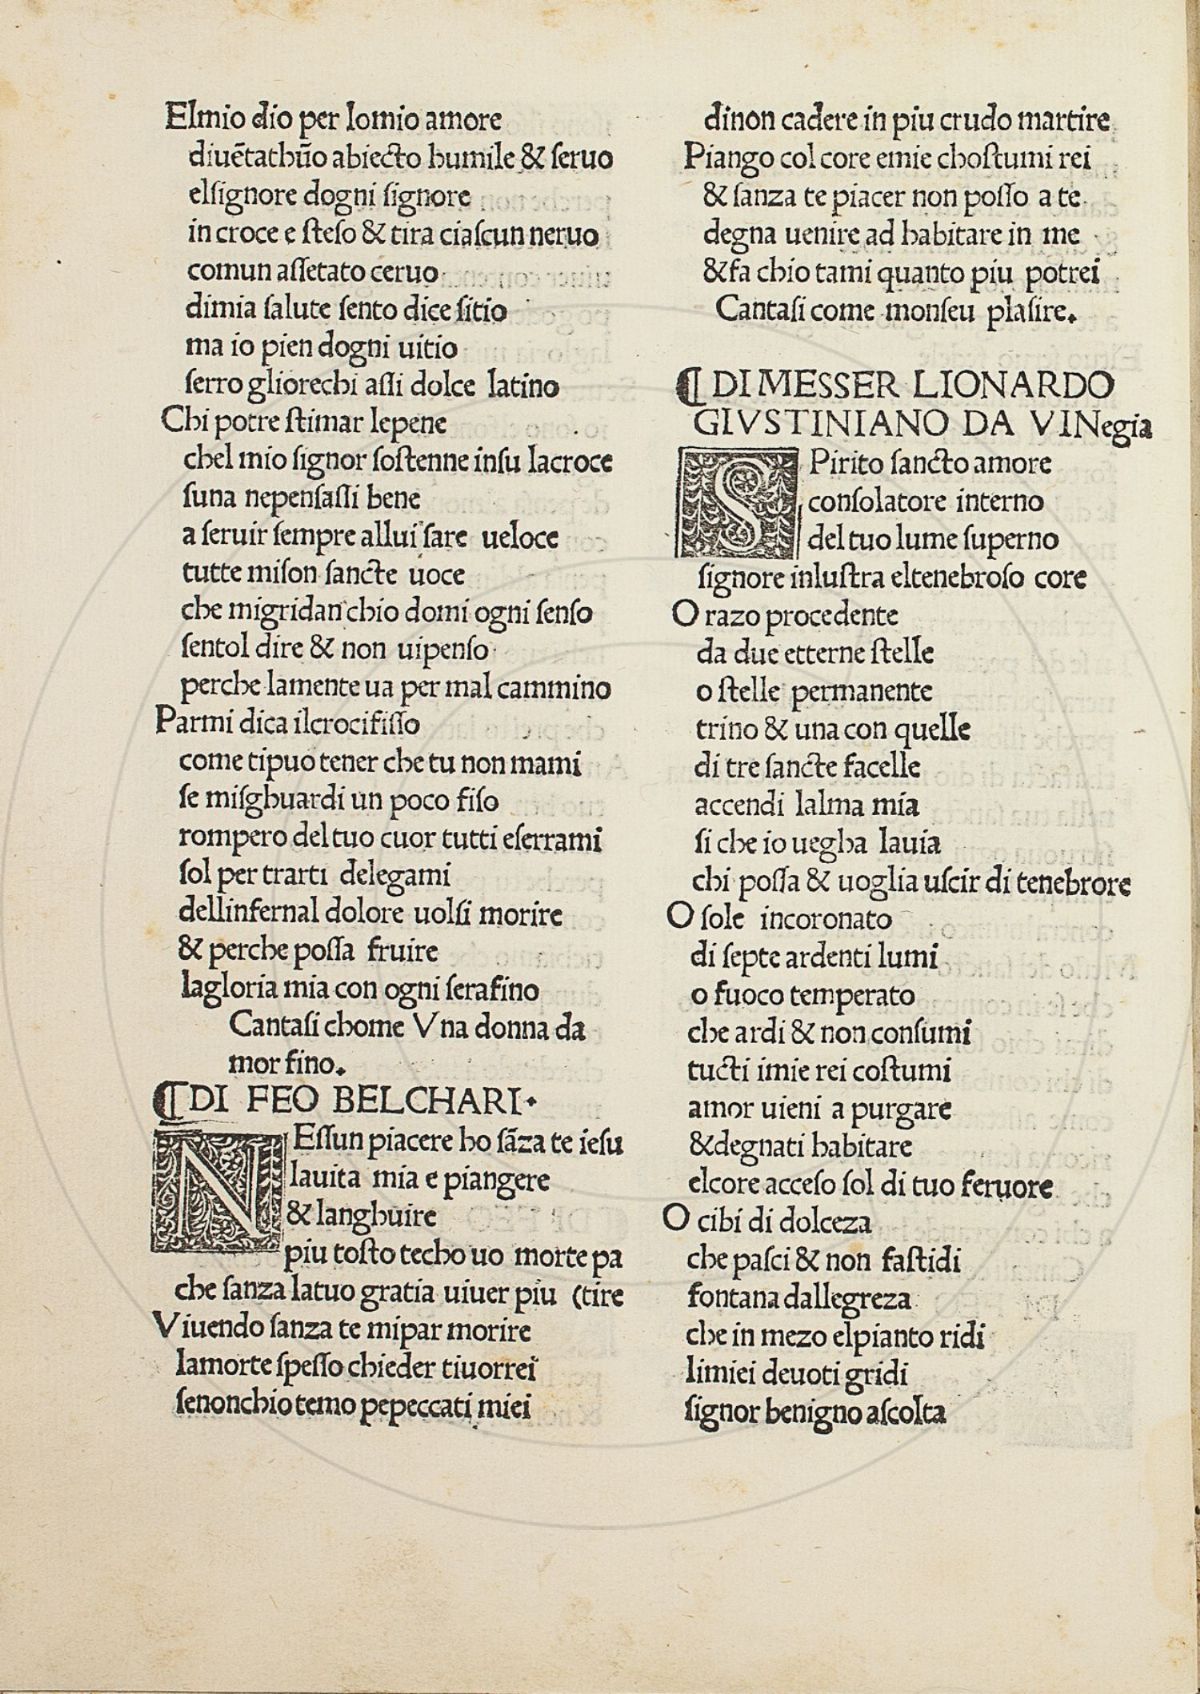 Elmio dio per lomio amore
diuẽtathũo abiecto humile & seruo
elsignore dogni signore
in croce e steso & tira ciascun neruo
comun assetato ceruo
dimia salute sento dice sitio
ma io pien dogni uitio
serro gliorechi assi dolce latino
Chi potre stimar lepene
chel mio signor sostenne insu lacroce
suna nepensassi bene
a seruir sempre allui sare ueloce
tutte mison sancte uoce
che migridan chio domi ogni senso
sentol dire & non uipenso
perche lamente ua per mal cammino
Parmi dica ilcrocifisso
come tipuo tener che tu non mami
se misghuardi un poco fiso
rompero del tuo cuor tutti eserrami
sol per trarti delegami
dellinfernal dolore uolsi morire
& perche possa fruire
lagloria mia con ogni serafino
Cantasi chome Vna donna da
mor fino.
¶ DI FEO BELCHARI.
NEssun piacere ho sãza te iesu
lauita mia e piangere
& langhuire
piu tosto techo uo morte pa
che sanza latuo gratia uiuer piu (tire
Viuendo sanza te mipar morire
lamorte spesso chieder tiuorrei
senonchio temo pepeccati miei
dinon cadere in piu crudo martire
Piango col core emie chostumi rei
& sanza te piacer non posso a te
degna uenire ad habitare in me
&fa chio tami quanto piu potrei
Cantasi come monseu plasire.
¶ DI MESSER LIONARDO
GIVSTINIANO DA VINegia
SPirito sancto amore
consolatore interno
del tuo lume superno
signore inlustra eltenebroso core
O razo procedente
da due etterne stelle
o stelle permanente
trino & una con quelle
di tre sancte facelle
accendi lalma mia
si che io uegha lauia
chi possa & uoglia uscir di tenebrore
O sole incoronato
di septe ardenti lumi
o fuoco temperato
che ardi & non consumi
tucti imie rei costumi
amor uieni a purgare
&degnati habitare
elcore acceso sol di tuo feruore
O cibi di dolceza
che pasci & non fastidi
fontana dallegreza
che in mezo elpianto ridi
limiei deuoti gridi
signor benigno ascolta